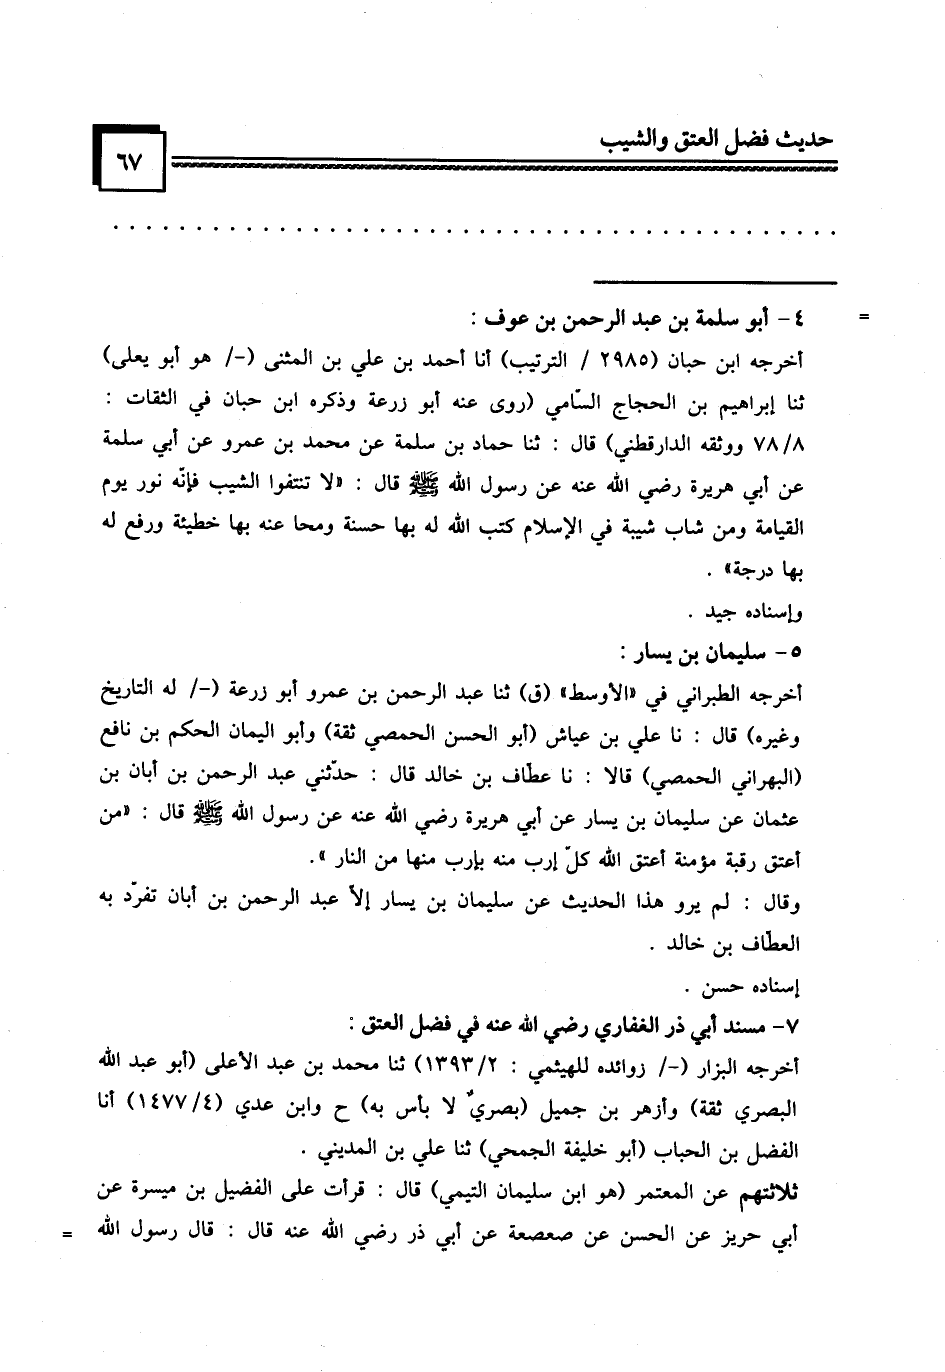 حديث فضل العتق والشيب
٦٧
. . . . . . . . . . . . . . . . . . . . . . . . . . . . . . . . . . . . . . .
= ٤ - أبو سلمة بن عبد الرحمن بن عوف :
أخرجه ابن حبان (٢٩٨٥ / الترتيب) أنا أحمد بن علي بن المثنى (-/ هو أبو يعلى)
ثنا إبراهيم بن الحجاج السّامي (روى عنه أبو زرعة وذكره ابن حبان في الثقات :
٧٨/٨ ووثقه الدارقطني) قال : ثنا حماد بن سلمة عن محمد بن عمرو عن أبي سلمة
عن أبي هريرة رضي الله عنه عن رسول الله ﷺ قال : «لا تنتفوا الشيب فإنّه نور يوم
القيامة ومن شاب شيبة في الإسلام كتب الله له بها حسنة ومحا عنه بها خطيئة ورفع له
بها درجة» .
وإسناده جيد .
٥ - سليمان بن يسار :
أخرجه الطبراني في «الأوسط» (ق) ثنا عبد الرحمن بن عمرو أبو زرعة (-/ له التاريخ
وغيره) قال : نا علي بن عياش (أبو الحسن الحمصي ثقة) وأبو اليمان الحكم بن نافع
(البهراني الحمصي) قالا : نا عطّاف بن خالد قال : حدّثني عبد الرحمن بن أبان بن
عثمان عن سليمان بن يسار عن أبي هريرة رضي الله عنه عن رسول الله ﷺ قال : «من
أعتق رقبة مؤمنة أعتق الله كلّ إرب منه بإرب منها من النار ».
وقال : لم يرو هذا الحديث عن سليمان بن يسار إلاّ عبد الرحمن بن أبان تفرّد به
العطّاف بن خالد .
إسناده حسن .
٧ - مسند أبي ذر الغفاري رضي الله عنه في فضل العتق :
أخرجه البزار (-/ زوائده للهيثمي : ١٣٩٣/٢) ثنا محمد بن عبد الأعلى (أبو عبد الله
البصري ثقة) وأزهر بن جميل (بصريٌ لا بأس به) ح وابن عدي (١٤٧٧/٤) أنا
الفضل بن الحباب (أبو خليفة الجمحي) ثنا علي بن المديني .
ثلاثتهم عن المعتمر (هو ابن سليمان التيمي) قال : قرأت على الفضيل بن ميسرة عن
أبي حريز عن الحسن عن صعصعة عن أبي ذر رضي الله عنه قال : قال رسول الله =